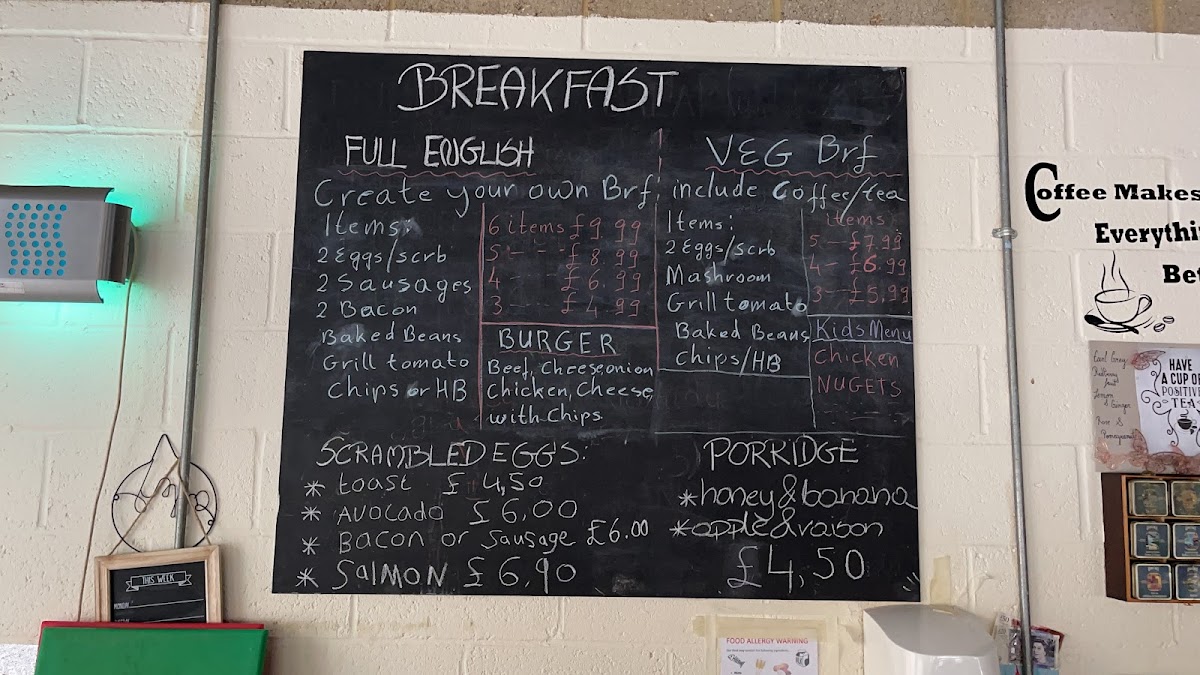 BREAKFAST
FULL ENGLISH
VEG Brf
Create your own Brf, include Coffee/tea
Items:
2 Eggs/scrb
2 Sausages
2 Bacon
Baked Beans
Grill tomato
Chips or HB
6 items £9.99
5 -- - £8.99
4 --- £6.99
3 --- £4.99
BURGER
Beef, Cheese, onion
Chicken, Cheese,
with Chips
Items:
2 Eggs/scrb
Mashroom
Grill tomato
Baked Beans
Chips/HB
items
5 -- £7.99
4 - £6.99
3 -- £5.99
Kids Menu
Chicken
NUGETS
SCRAMBLED EGGS:
* toast £4,50
* AVOCADO £6,00
* BACON or Sausage £6.00
* SALMON £6,90
PORRIDGE
* honey & banana
* apple & raison
£4,50
Coffee Makes
Everythin
Bet
Earl Grey
Lemon
& Ginger
Rose &
HAVE
A CUP OF
POSITIVE
TEA
THIS WEEK
MONDAY
FOOD ALLERGY WARNING